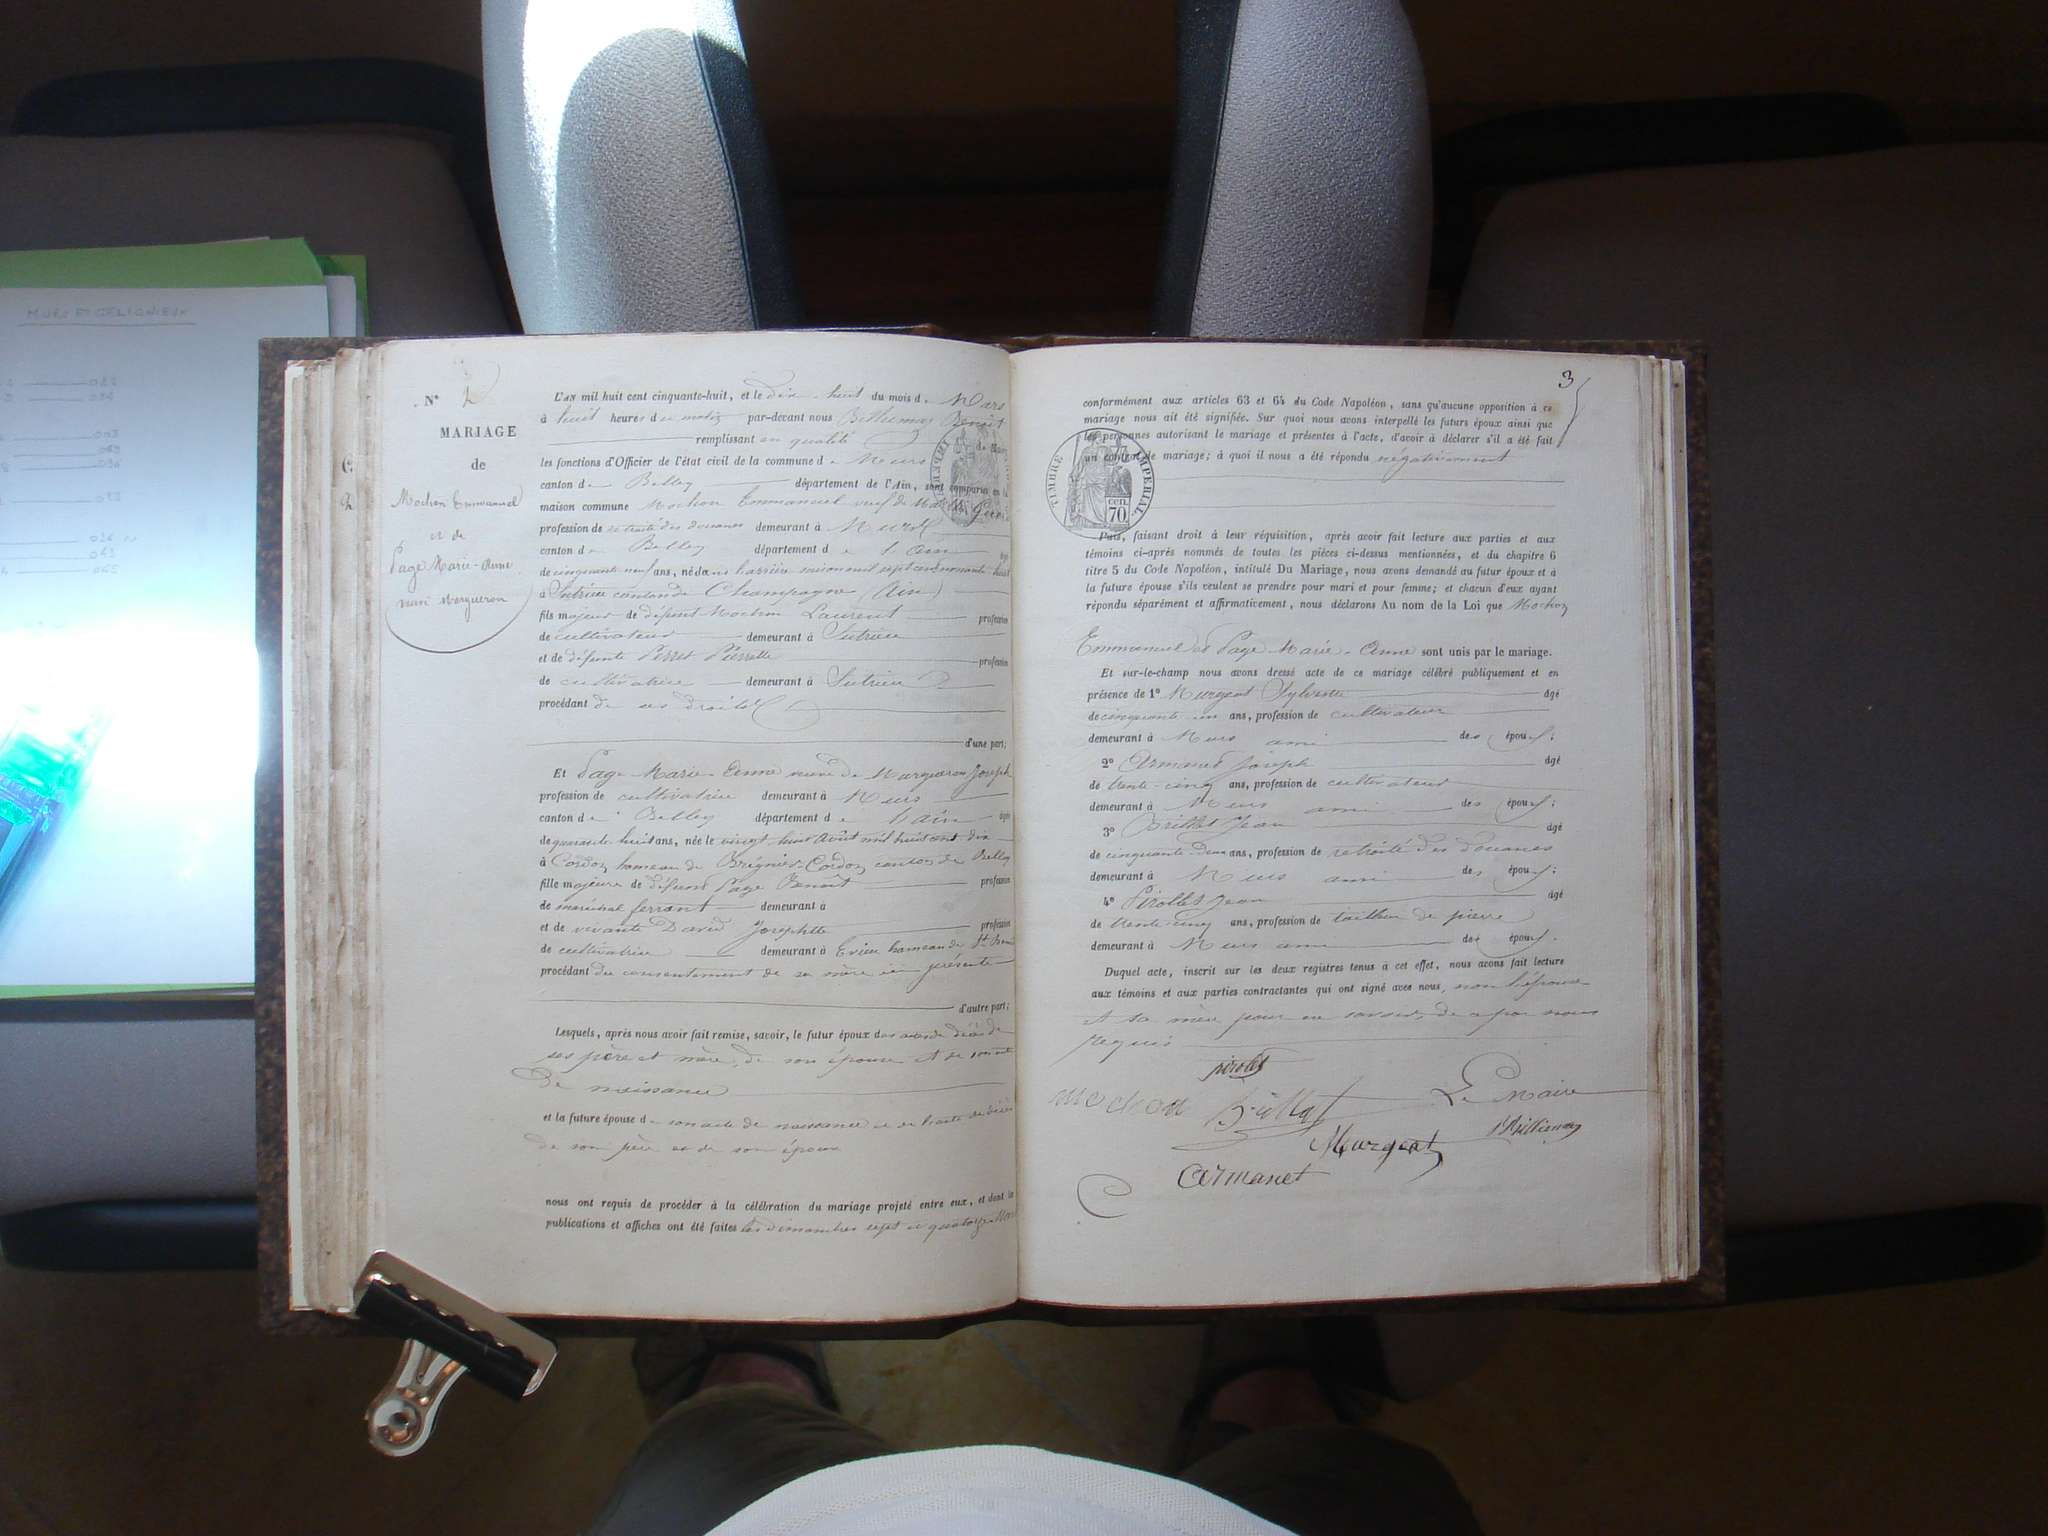 MURS ET GELIGNIEUX
N° 2
MARIAGE
de
Mochon Emmanuel
et de
Page Marie-Anne
veuve Margueron
L'an mil huit cent cinquante-huit, et le dix-huit du mois de Mars
à huit heures du matin par-devant nous Benoit
remplissant en qualité
les fonctions d'Officier de l'état civil de la commune de Murs
canton de Belley département de l'Ain, sont comparus en la
maison commune Mochon Emmanuel veuf de
profession de retraité des douanes demeurant à Murs
canton de Belley département de l'Ain âgé
de cinquante neuf ans, né
à Sutrieu canton de Champagne (Ain)
fils majeur de défunt Mochon Laurent profession
de cultivateur demeurant à Sutrieu
et de défunte Perret Pierrette profession
de cultivatrice demeurant à Sutrieu
procédant de ses droits
d'une part;
Et Page Marie-Anne veuve de Margueron Joseph
profession de cultivatrice demeurant à Murs
canton de Belley département de l'Ain âgée
de quarante huit ans, née le vingt huit Août mil huit cent dix
à Cordon hameau de Brégnier-Cordon canton de Belley
fille majeure de défunt Page Benoît profession
de maréchal ferrant demeurant à
et de vivante David Josephte profession
de cultivatrice demeurant à Evieu hameau de St
procédant du consentement de sa mère ici présente
d'autre part;
Lesquels, après nous avoir fait remise, savoir, le futur époux des actes de décès de
ses père et mère, de son épouse et de son acte
de naissance
et la future épouse de son acte de naissance et de l'extrait de décès
de son père et de son époux
nous ont requis de procéder à la célébration du mariage projeté entre eux, et dont les
publications et affiches ont été faites les dimanches sept et quatorze Mars
3
conformément aux articles 63 et 64 du Code Napoléon, sans qu'aucune opposition à ce
mariage nous ait été signifiée. Sur quoi nous avons interpellé les futurs époux ainsi que
les personnes autorisant le mariage et présentes à l'acte, d'avoir à déclarer s'il a été fait
un contrat de mariage; à quoi il nous a été répondu négativement
TIMBRE IMPERIAL
cen.
70
Puis, faisant droit à leur réquisition, après avoir fait lecture aux parties et aux
témoins ci-après nommés de toutes les pièces ci-dessus mentionnées, et du chapitre 6
titre 5 du Code Napoléon, intitulé Du Mariage, nous avons demandé au futur époux et à
la future épouse s'ils veulent se prendre pour mari et pour femme; et chacun d'eux ayant
répondu séparément et affirmativement, nous déclarons Au nom de la Loi que Mochon
Emmanuel et Page Marie-Anne sont unis par le mariage.
Et sur-le-champ nous avons dressé acte de ce mariage célébré publiquement et en
présence de 1° Murgeat Sylvestre âgé
de cinquante un ans, profession de cultivateur
demeurant à Murs ami des époux;
2° Armanet Joseph âgé
de trente-cinq ans, profession de cultivateur
demeurant à Murs ami des époux;
3° Brillat Jean âgé
de cinquante-deux ans, profession de retraité des douanes
demeurant à Murs ami des époux;
4° Pirollet Jean âgé
de trente-cinq ans, profession de tailleur de pierre
demeurant à Murs ami des époux.
Duquel acte, inscrit sur les deux registres tenus à cet effet, nous avons fait lecture
aux témoins et aux parties contractantes qui ont signé avec nous, non l'épouse
et sa mère pour ne savoir, de ce par nous
requis
pirolet
mochon Brillat Le Maire
Murgeat
Armanet